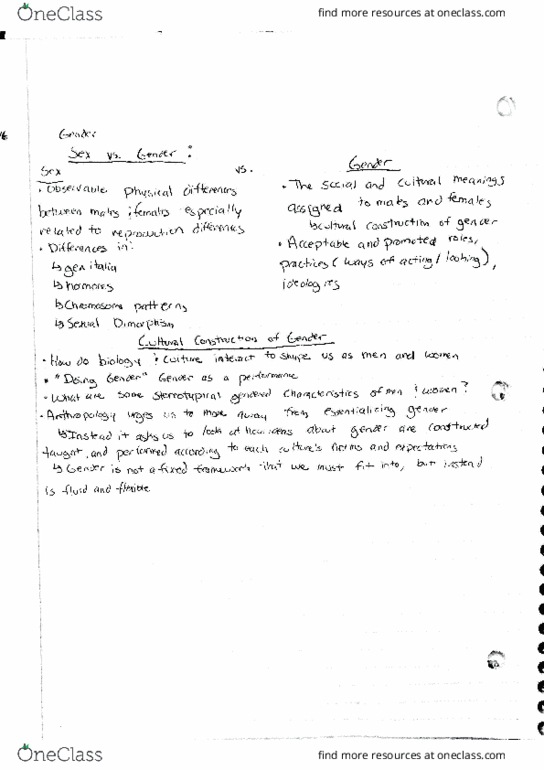 OneClass
find more resources at oneclass.com
Gender
Sex vs. Gender:
Sex vs. Gender
• Observable physical differences
between males & females especially
related to reproduction differences
• Differences in:
↳ genitalia
↳ hormones
↳ Chromosome patterns
↳ Sexual Dimorphism
• The social and cultural meanings
assigned to males and females
↳ cultural construction of gender
• Acceptable and promoted roles,
practices (ways of acting/looking),
ideologies
Cultural Construction of Gender
• How do biology & culture interact to shape us as men and women
• "Doing Gender" Gender as a performance
• What are some stereotypical gendered characteristics of men & women?
• Anthropology urges us to move away from essentializing gender
↳ Instead it asks us to look at how ideas about gender are constructed
taught, and performed according to each culture's norms and expectations
↳ Gender is not a fixed framework that we must fit into, but instead
is fluid and flexible
OneClass
find more resources at oneclass.com